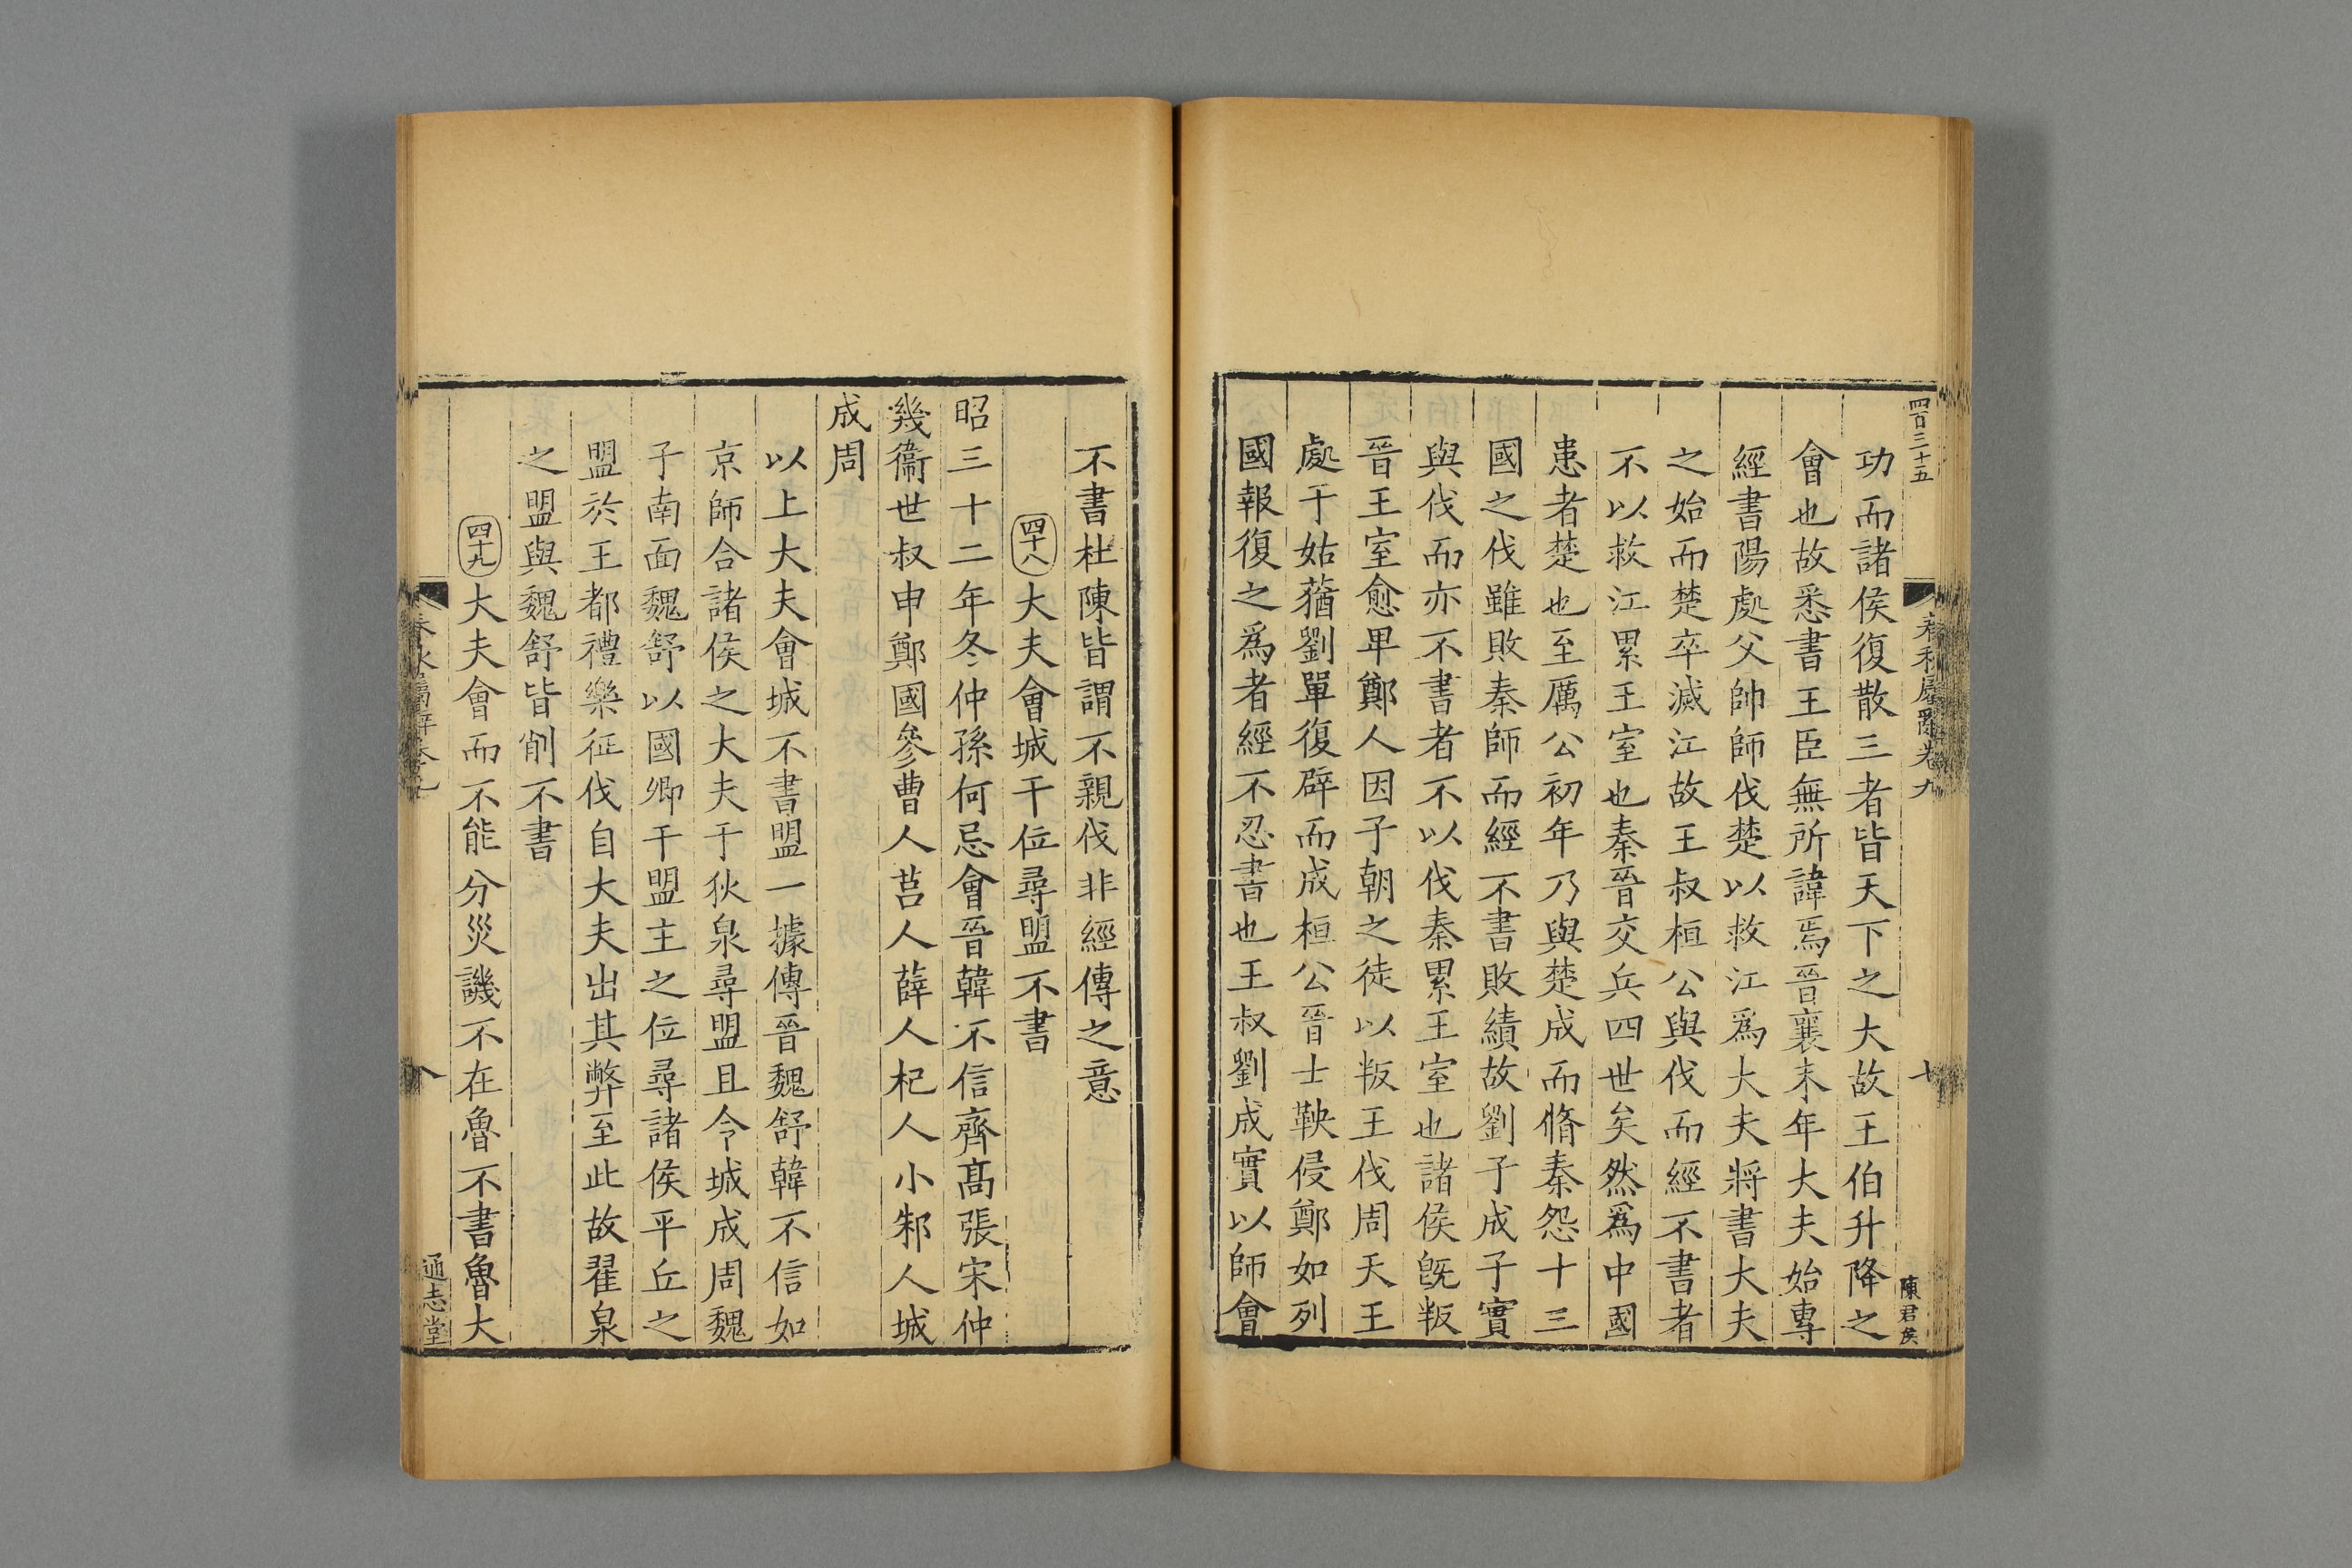 四百三十五
春秋屬辭卷九
七
陳君侯
功而諸侯復散三者皆天下之大故王伯升降之
會也故悉書王臣無所諱焉晉襄末年大夫始專
經書陽處父帥師伐楚以救江爲大夫將書大夫
之始而楚卒滅江故王叔桓公與伐而經不書者
不以救江累王室也秦晉交兵四世矣然爲中國
患者楚也至厲公初年乃與楚成而脩秦怨十三
國之伐雖敗秦師而經不書敗績故劉子成子實
與伐而亦不書者不以伐秦累王室也諸侯旣叛
晉王室愈卑鄭人因子朝之徒以叛王伐周天王
處于姑蕕劉單復辟而成桓公晉士鞅侵鄭如列
國報復之爲者經不忍書也王叔劉成實以師會
不書杜陳皆謂不親伐非經傳之意
四十八大夫會城干位尋盟不書
昭三十二年冬仲孫何忌會晉韓不信齊髙張宋仲
幾衞世叔申鄭國參曹人莒人薛人杞人小邾人城
成周
以上大夫會城不書盟一據傳晉魏舒韓不信如
京師合諸侯之大夫于狄泉尋盟且令城成周魏
子南面魏舒以國卿干盟主之位尋諸侯平丘之
盟於王都禮樂征伐自大夫出其弊至此故翟泉
之盟與魏舒皆削不書
四十九大夫會而不能分災譏不在魯不書魯大
春秋屬辭卷九
八
通志堂